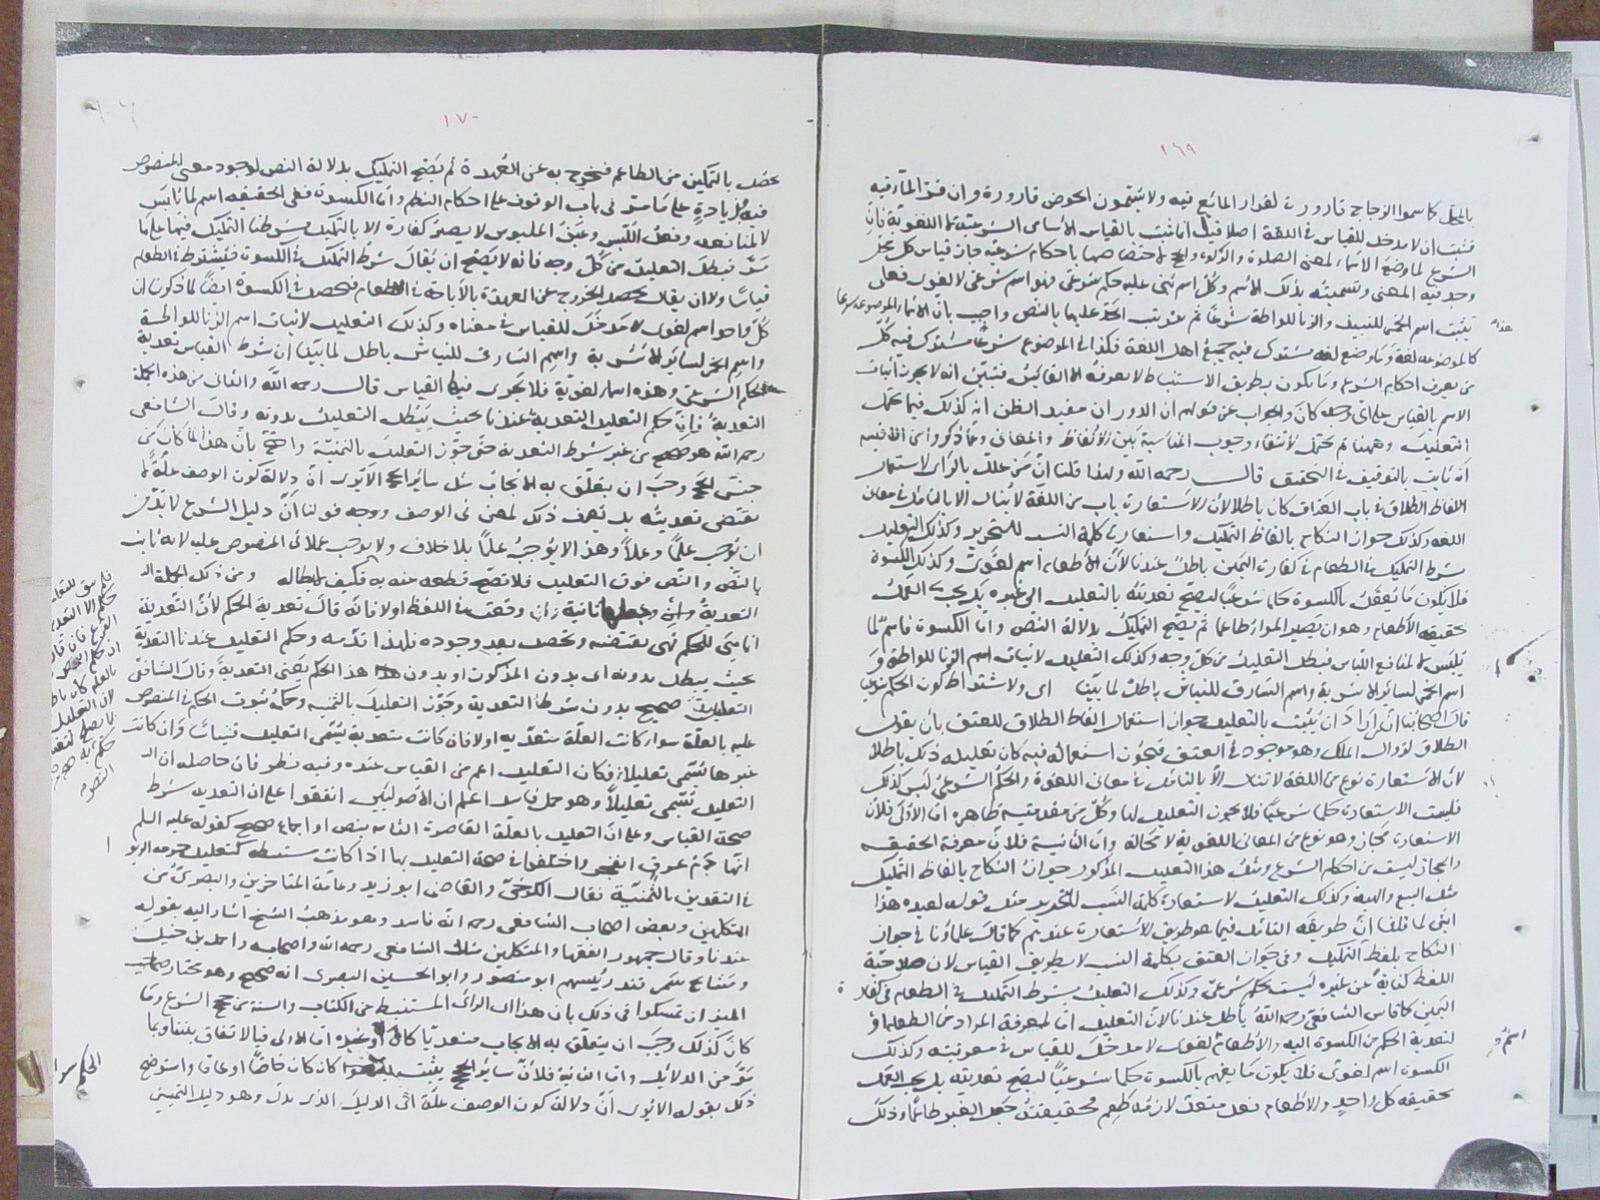 ١٦٩
بالحلّ كما سموا الزجاج قارورة لقرار المائع فيه ولا يسمون الحوض قارورة وان قرّ الماء فيه
فثبت ان لا مدخل للقياس في اللغة اصلا فيل انما يثبت بالقياس الاسامى الشرعية لا اللغوية فان
الشرع لما وضع الاسماء لمعنى الصلوة والزكوة والحج لاختصاصها باحكام شرعية جاز قياس كل محل
وجد فيه المعنى وتسميته بذلك الاسم وكل اسم بنى عليه حكم شرعى فهو اسم شرعى لا لغوى فعلى
يثبت اسم الخمر للنبيذ والزنا للواطة شرعا ثم يترتب الحد عليها بالنص واجيب بان الاسماء الموضوعة شرعا
كالموضوعة لغة وما وضع لغة يشترك فيه جميع اهل اللغة فكذا في الموضوع شرعا يشترك فيه كل
من يعرف احكام الشرع وما يكون بطريق الاستنباط لا يعرفه الا القائس فتبين انه لا يجوز اثبات
الاسم بالقياس على اى وجه كان والجواب عن قولهم ان الدوران مفيد الظن انه كذلك فيما يحتمل
التعليل وههنا لم يحتمل لانتفاء وجوب المناسبة بين الالفاظ والمعانى وما ذكروا من الاقيسة
انه ثابت بالتوقيف في التحقيق قال رحمه الله ولهذا قلنا ان من علل بالرأى لاستعمال
الفاظ الطلاق في باب العتاق كان باطلا لان الاستعارة باب من اللغة لا ينال الا بالتأمل في معانى
اللغة وكذلك جواز النكاح بالفاظ التمليك واستعارة كلمة النسب للتحرير وكذلك التعليل
بشرط التمليك في الطعام في كفارة اليمين باطل عندنا لان الاطعام اسم لغوى وكذلك الكسوة
فلا يكون ما يعقل بالكسوة حكما شرعيا ليصح تعديته بالتعليل الى غيره بل يجب العمل
بحقيقة الاطعام وهو ان يصير المراد طاعما ثم يصح التمليك بدلالة النص واما الكسوة فاسم لما
يلبس لا لمنافع اللباس فبطل التعليل من كل وجه وكذلك التعليل لاثبات اسم الزنا للواطة و
اسم الخمر لسائر الاشربة واسم السارق للنباش باطل لما بينا اى ولاشتراط كون الحكم شرعيا
قال اصحابنا ان اراد ان يثبت بالتعليل جواز استعمال الفاظ الطلاق للعتق بان يقول
الطلاق لزوال الملك وهو موجود في العتق فيجوز استعماله فيه كان تعليله ذلك باطلا
لان الاستعارة نوع من اللغة لا تنال الا بالتأمل في معانى اللغة والحكم الشرعى ليس كذلك
فليست الاستعارة حكما شرعيا فلا يجوز التعليل لها وكل من مقدمتيه ظاهرة اما الاولى فلان
الاستعارة مجاز وهو نوع من المعانى اللغوية لا محالة واما الثانية فلان معرفة الحقيقة
والمجاز ليست من احكام الشرع ومثل هذا التعليل المذكور جواز النكاح بالفاظ التمليك
مثل البيع والهبة وكذلك التعليل لاستعارة كلمة النسب للتحرير مثل قوله لعبده هذا
ابنى لما قلنا ان طريقه التأمل فيما هو طريق الاستعارة عندهم كما قال علماؤنا في جواز
النكاح بلفظ التمليك وفي جواز العتق بكلمة النسب لا بطريق القياس لان صلاحية
اللفظ كناية عن غيره ليست بحكم شرعى وكذلك التعليل بشرط التمليك في الطعام في كفارة
اليمين كما قاس الشافعى رحمه الله باطل عندنا لان التعليل اما لمعرفة المراد من الطعام او
لتعدية الحكم من الكسوة اليه والاطعام لغوى لا مدخل للقياس في معرفته وكذلك
الكسوة اسم لغوى فلا يكون ما يفهم بالكسوة حكما شرعيا ليصح تعديته بل يجب العمل
بحقيقة كل واحد والاطعام فعل متعد لازمه طعم فحقيقته جعل الغير طاعما وذلك
اسم
١٧٠
يحصل بالتمكين من الطاعم فيخرج به عن العهدة ثم يصح التمليك بدلالة النص لوجود معنى المنصوص
فيه بزيادة على ما مر في باب الوقوف على احكام النظم واما الكسوة ففى الحقيقة اسم لما يلبس
لا لمنافعه وفعل اللبس وعين الملبوس لا يصير كفارة الا بالتمليك وشرطنا التمليك فيها على ما
مر فبطل التعليل من كل وجه فانه لا يصح ان يقال شرط التمليك في الكسوة فيشترط في الطعام
قياسا ولا ان يقال يحصل الخروج عن العهدة بالاباحة في الاطعام فيحصل في الكسوة ايضا لما ذكرنا ان
كل واحد اسم لغوى لا مدخل للقياس في معناه وكذلك التعليل لاثبات اسم الزنا للواطة
واسم الخمر لسائر الاشربة واسم السارق للنباش باطل لما بينا ان شرط القياس تعدية
الحكم الشرعى وهذه اسماء لغوية فلا يجرى فيها القياس قال رحمه الله والثانى من هذه الجملة
التعدية فان حكم التعليل التعدية عندنا بحيث يبطل التعليل بدونه وقال الشافعى
رحمه الله هو صحيح من غير شرط التعدية حتى جوز التعليل بالثمنية واحتج بان هذا لما كان من
جنس الحجج وجب ان يتعلق به الايجاب مثل سائر الحجج الا يرى ان دلالة كون الوصف علة لا
يقتضى تعديته بل يعرف ذلك لمعنى في الوصف ووجه قولنا ان دليل الشرع لا بد من
ان يوجب علما وعملا وهذا لا يوجب علما بلا خلاف ولا يوجب عملا في المنصوص عليه لانه ثابت
بالنص والنص فوق التعليل فلا يصح قطعه عنه به فكيف لابطاله ومن ذلك الجملة
التعدية ثانية وقعت في اللفظ اولا فانه قال تعدية الحكم لان التعدية
انما هى للحكم فهى تقتضيه وتحصل بعد وجوده فلهذا قدمه وحكم التعليل عندنا التعدية
بحيث يبطل بدونه اى بدون المذكور او بدون هذا الحكم يعنى التعدية وقال الشافعى
التعليل صحيح بدون شرط التعدية وجوز التعليل بالثمنية وحكمه ثبوت الحكم في المنصوص
عليه بالعلة سواء كانت العلة متعدية اولا فان كانت متعدية يسمى التعليل قياسا وان كانت
غيرها يسمى تعليلا فكان التعليل اعم من القياس عنده وفيه نظر فان حاصله ان
التعليل يسمى تعليلا وهو حمل فاسد اعلم ان الاصوليين اتفقوا على ان التعدية شرط
صحة القياس وعلى ان التعليل بالعلة القاصرة الثابتة بنص او اجماع صحيح كقوله عليه السلم
انها دم عرق انفجر واختلفوا في صحة التعليل بها اذا كانت مستنبطة كتعليل حرمة الربو
في النقدين بالثمنية فقال الكرخى والقاضى ابو زيد وعامة المتاخرين والبصرى من
المتكلمين وبعض اصحاب الشافعى رحمه الله انه فاسد وهو مذهب الشيخ اشار اليه بقوله
عندنا وقال جمهور الفقهاء والمتكلمين مثل الشافعى رحمه الله واصحابه واحمد بن حنبل
ومشايخ سمرقند رئيسهم ابو منصور وابو الحسين البصرى انه صحيح وهو مختار صاحب
الميزان تمسكوا في ذلك بان هذا اى الرأى المستنبط من الكتاب والسنة من حجج الشرع وما
كان كذلك وجب ان يتعلق به الايجاب متعديا كان او غيره اما الاولى فبالاتفاق بيننا وبما
مر من الدلائل واما الثانية فلان سائر الحجج يثبت بها كان خاصا او عاما واستوضح
ذلك بقوله الا يرى ان دلالة كون الوصف علة اى الدليل الذى يدل وهو دليل التمييز
الحكم سوا